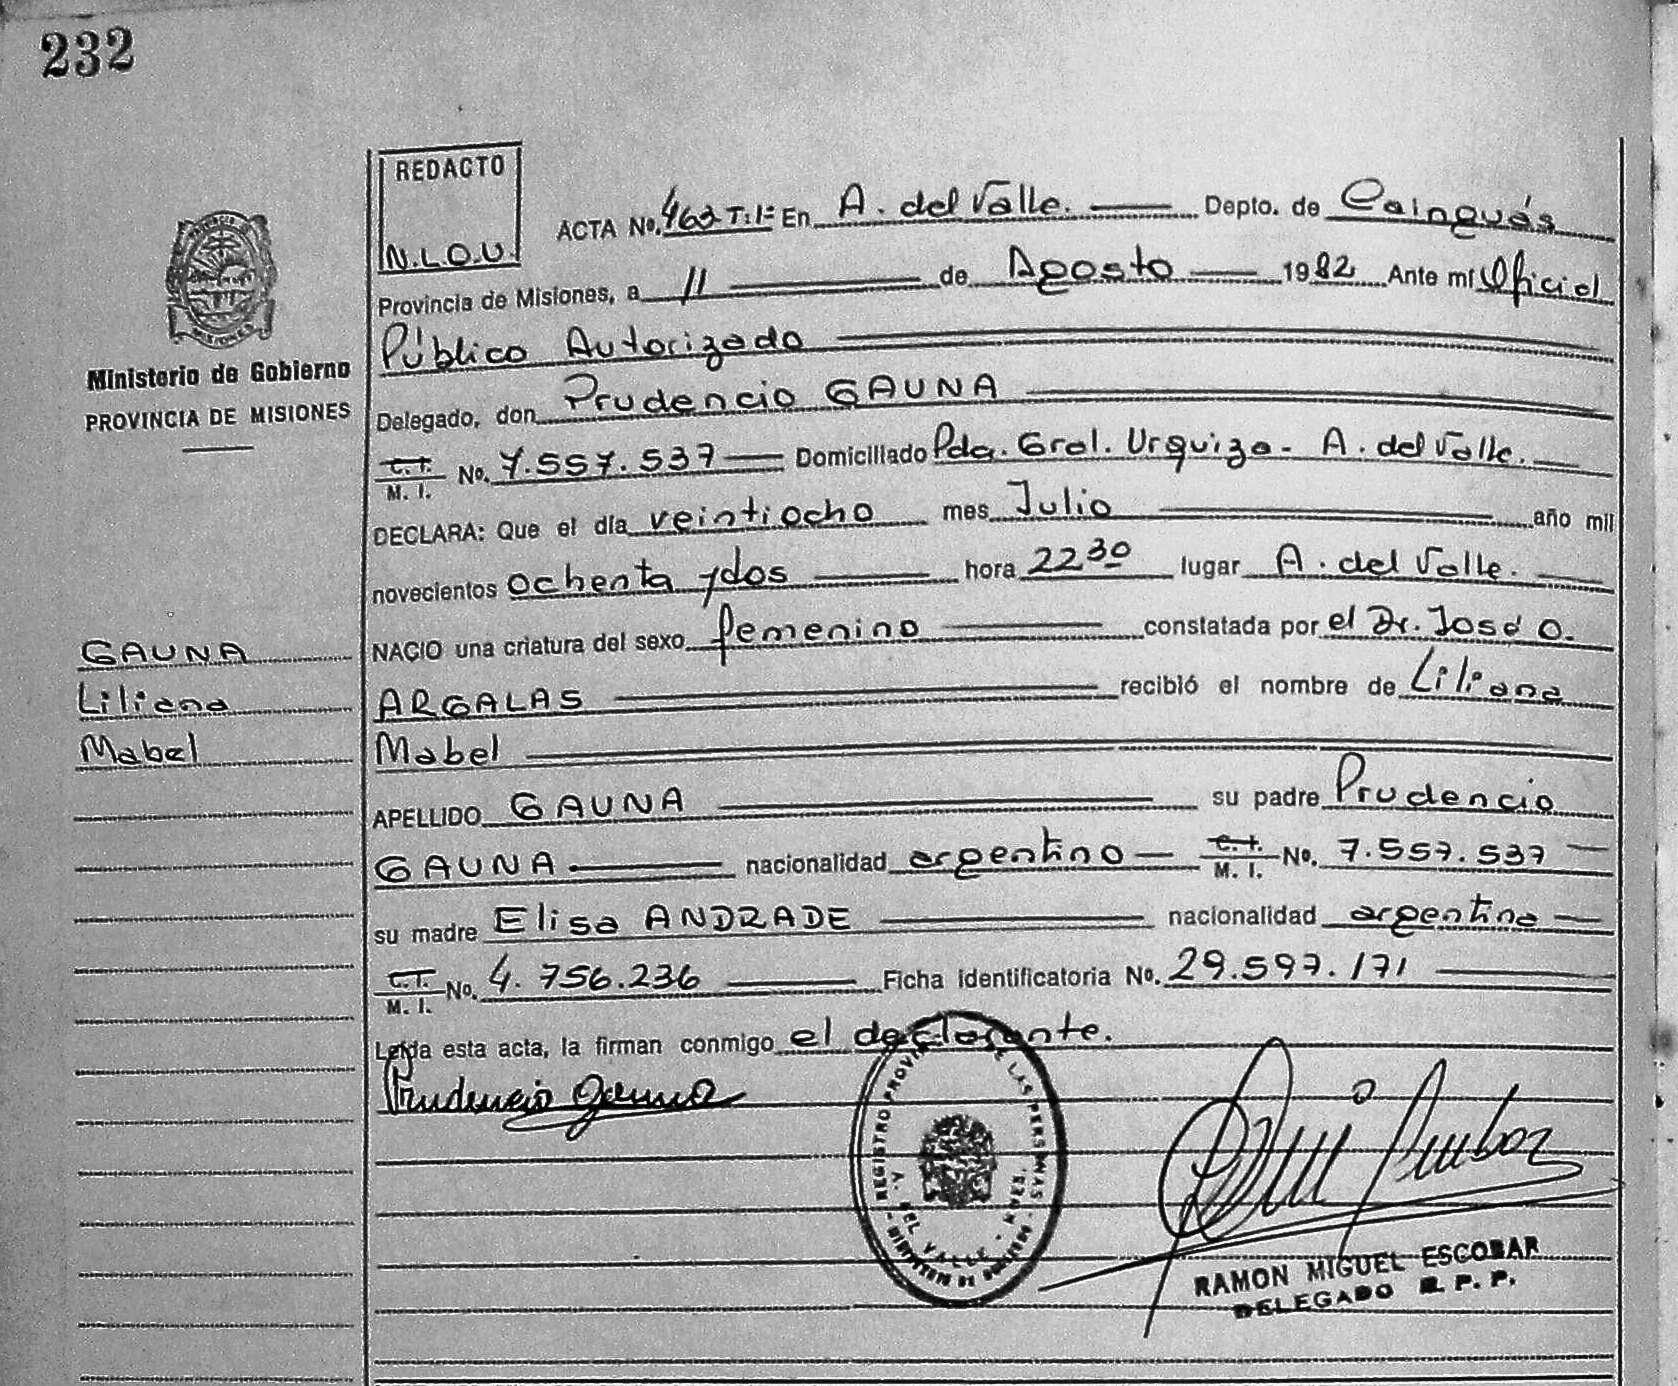 232
REDACTO
N.L.O.U.
ACTA No. 463 T:1º En A. del Valle. Depto. de Cainguás
Provincia de Misiones, a 11 de Agosto 1982 Ante mí Oficial
Público Autorizado
Ministerio de Gobierno
PROVINCIA DE MISIONES
Delegado, don Prudencio GAUNA
C.I. M. I. No. 7.557.537 Domiciliado Pda. Gral. Urquiza - A. del Valle.
DECLARA: Que el día veintiocho mes Julio año mil
novecientos ochenta y dos hora 22 30 lugar A. del Valle.
NACIO una criatura del sexo femenino constatada por el Dr. José O.
ARGALAS recibió el nombre de Liliana
Mabel
GAUNA
Liliana
Mabel
APELLIDO GAUNA su padre Prudencio
GAUNA nacionalidad argentino C.I. M. I. No. 7.557.537
su madre Elisa ANDRADE nacionalidad argentina
C.I. M. I. No. 4.756.236 Ficha identificatoria No. 29.597.171
Leída esta acta, la firman conmigo el declarante.
Prudencio Gauna
REGISTRO PROVINCIAL DE LAS PERSONAS
A. DEL VALLE - MNES.
RAMON MIGUEL ESCOBAR
DELEGADO R. P. P.